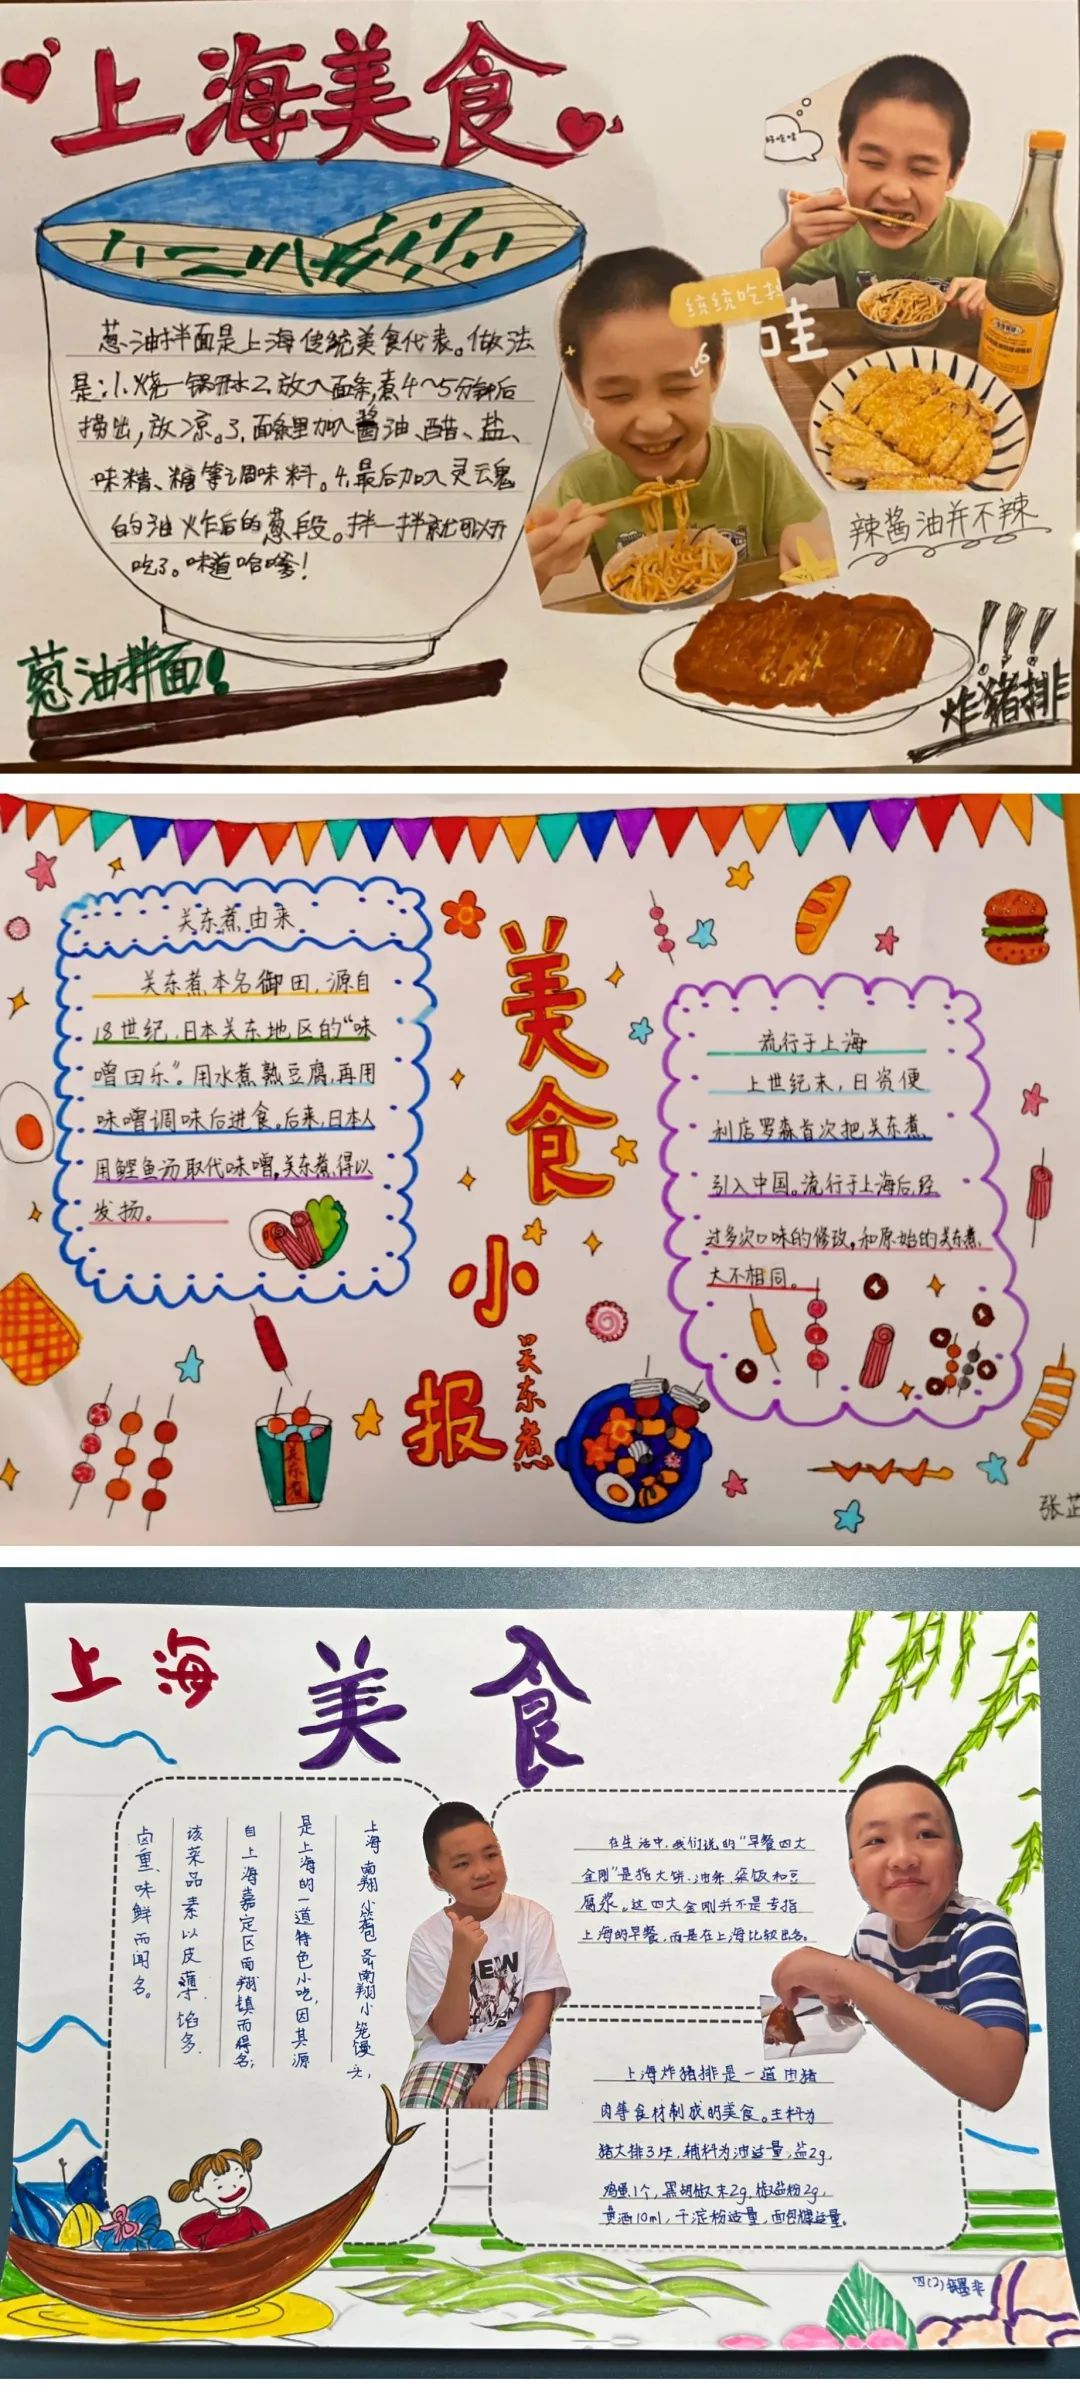 上海美食
葱油拌面是上海传统美食代表。做法
是:1.烧一锅开水2.放入面条,煮4~5分钟后
捞出,放凉。3.面条里加入酱油、醋、盐、
味精、糖等调味料。4.最后加入灵魂
的油炸后的葱段。拌一拌就可以开
吃了。味道哈嗲!
葱油拌面!
好吃哇
统统吃
哇
辣酱油并不辣
炸猪排!!!
美食小报
关东煮
关东煮由来
关东煮本名御田,源自
18世纪,日本关东地区的“味
噌田乐”。用水煮熟豆腐,再用
味噌调味后进食。后来,日本人
用鲣鱼汤取代味噌,关东煮得以
发扬。
流行于上海
上世纪末,日资便
利店罗森首次把关东煮
引入中国。流行于上海后,经
过多次口味的修改,和原始的关东煮
大不相同。
关东煮
张芷
上海美食
上海南翔小笼包
南翔小笼馒头,
是上海的一道特色小吃,因其源
自上海嘉定区南翔镇而得名;
该菜品素以皮薄、馅多、
卤重、味鲜而闻名。
在生活中,我们说的“早餐四大
金刚”是指大饼、油条、粢饭和豆
腐浆。这四大金刚并不是专指
上海的早餐,而是在上海比较出名。
上海炸猪排是一道由猪
肉等食材制成的美食。主料为
猪大排3块,辅料为油适量,盐2g,
鸡蛋1个,黑胡椒末2g,椒盐粉2g,
黄酒10ml,干淀粉适量,面包糠适量。
四(2)